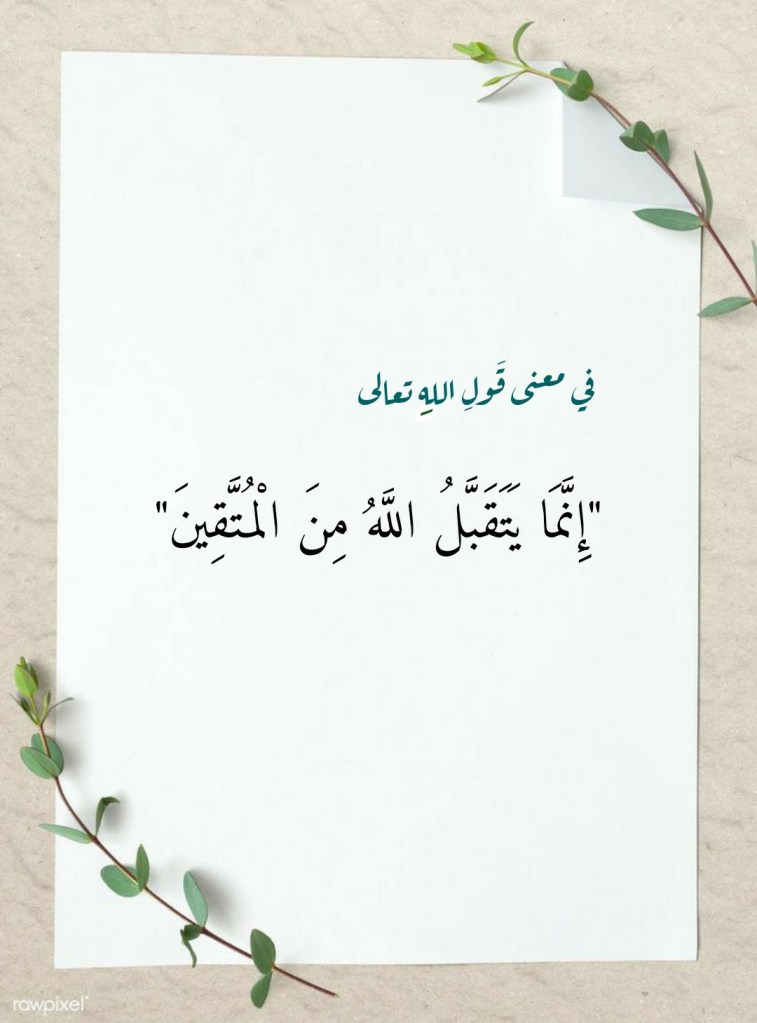 في معنى قَولِ اللهِ تعالى
"إِنَّمَا يَتَقَبَّلُ اللَّهُ مِنَ الْمُتَّقِينَ"
rawpixel